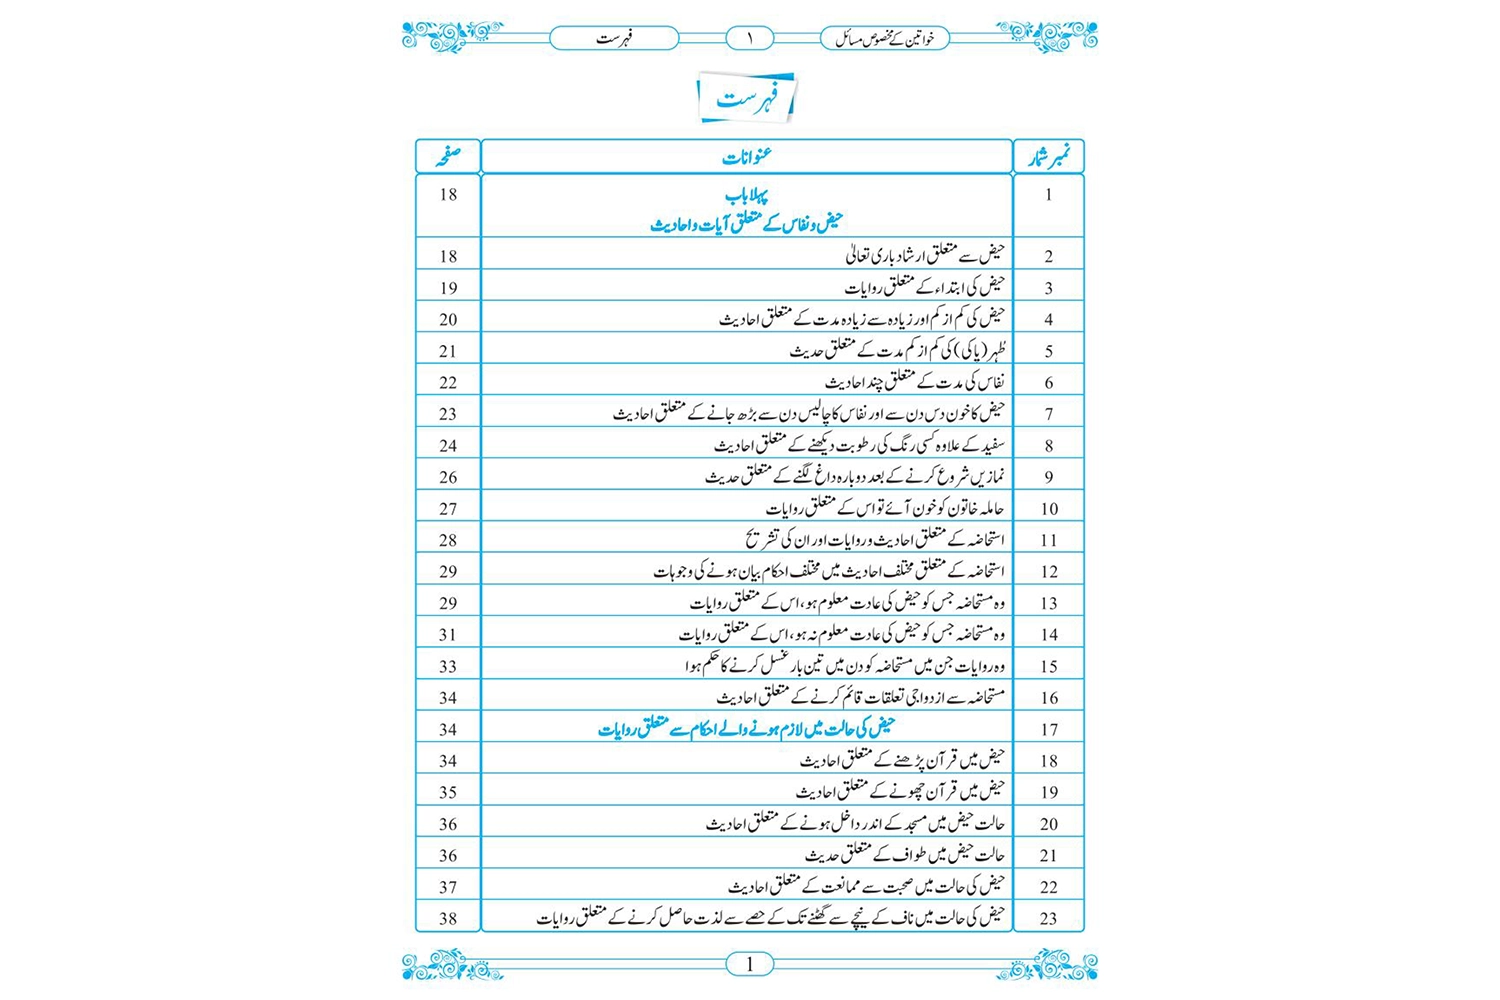 خواتین کے مخصوص مسائل ۱ فہرست
فہرست
نمبر شمار عنوانات صفحہ
1 پہلا باب 18
حیض و نفاس کے متعلق آیات و احادیث
2 حیض سے متعلق ارشاد باری تعالیٰ 18
3 حیض کی ابتداء کے متعلق روایات 19
4 حیض کی کم از کم اور زیادہ سے زیادہ مدت کے متعلق احادیث 20
5 طُہر (پاکی) کی کم از کم مدت کے متعلق حدیث 21
6 نفاس کی مدت کے متعلق چند احادیث 22
7 حیض کا خون دس دن سے اور نفاس کا چالیس دن سے بڑھ جانے کے متعلق احادیث 23
8 سفید کے علاوہ کسی رنگ کی رطوبت دیکھنے کے متعلق احادیث 24
9 نمازیں شروع کرنے کے بعد دوبارہ داغ لگنے کے متعلق حدیث 26
10 حاملہ خاتون کو خون آئے تو اس کے متعلق روایات 27
11 استحاضہ کے متعلق احادیث و روایات اور ان کی تشریح 28
12 استحاضہ کے متعلق مختلف احادیث میں مختلف احکام بیان ہونے کی وجوہات 29
13 وہ مستحاضہ جس کو حیض کی عادت معلوم ہو، اس کے متعلق روایات 29
14 وہ مستحاضہ جس کو حیض کی عادت معلوم نہ ہو، اس کے متعلق روایات 31
15 وہ روایات جن میں مستحاضہ کو دن میں تین بار غسل کرنے کا حکم ہوا 33
16 مستحاضہ سے ازدواجی تعلقات قائم کرنے کے متعلق احادیث 34
17 حیض کی حالت میں لازم ہونے والے احکام سے متعلق روایات 34
18 حیض میں قرآن پڑھنے کے متعلق احادیث 34
19 حیض میں قرآن چھونے کے متعلق احادیث 35
20 حالت حیض میں مسجد کے اندر داخل ہونے کے متعلق احادیث 36
21 حالت حیض میں طواف کے متعلق حدیث 36
22 حیض کی حالت میں صحبت سے ممانعت کے متعلق احادیث 37
23 حیض کی حالت میں ناف کے نیچے سے گھٹنے تک کے حصے سے لذت حاصل کرنے کے متعلق روایات 38
1